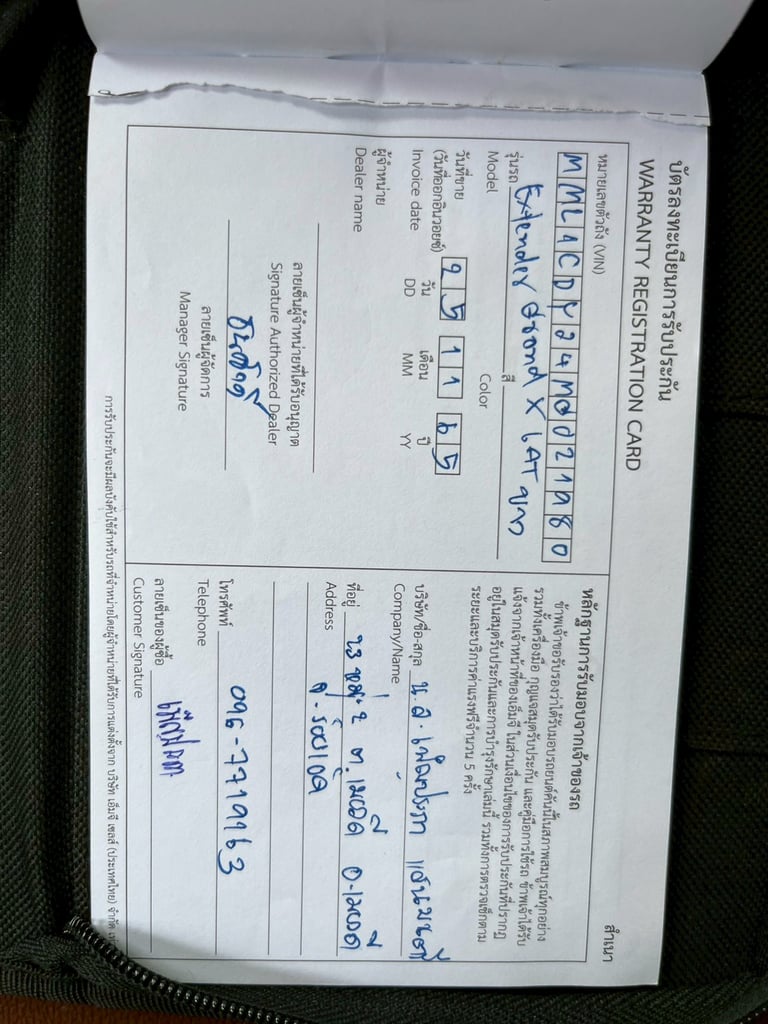 บัตรลงทะเบียนการรับประกัน
WARRANTY REGISTRATION CARD
สำเนา
หมายเลขตัวถัง (VIN)
รุ่นรถ Extender Grand X 6AT สี ขาว
Model
Color
วันที่ขาย
(วันที่ออกอินวอยซ์) 25 11 65
Invoice date
วัน เดือน ปี
DD MM YY
ผู้จำหน่าย
Dealer name
ลายเซ็นผู้จำหน่ายที่ได้รับอนุญาต
Signature Authorized Dealer
ลายเซ็นผู้จัดการ
Manager Signature
หลักฐานการรับมอบจากเจ้าของรถ
ข้าพเจ้าขอรับรองว่าได้รับมอบรถยนต์คันนี้ในสภาพสมบูรณ์ทุกอย่าง
รวมทั้งเครื่องมือ กุญแจสมุดรับประกัน และคู่มือการใช้รถ ข้าพเจ้าได้รับ
แจ้งจากเจ้าหน้าที่ของเอ็มจี ในส่วนเงื่อนไขของการรับประกันที่ปรากฏ
อยู่ในสมุดรับประกันและการบำรุงรักษาเล่มนี้ รวมทั้งการตรวจเช็กตาม
ระยะและบริการค่าแรงฟรีจำนวน 5 ครั้ง
บริษัท/ชื่อ-สกุล น.ส.
Company/Name
ที่อยู่ 23 หมู่ 2 ต.
Address
จ.ร้อยเอ็ด
โทรศัพท์ 096-7719163
Telephone
ลายเซ็นของผู้ซื้อ
Customer Signature
การรับประกันจะมีผลบังคับใช้สำหรับรถที่จำหน่ายโดยผู้จำหน่ายที่ได้รับการแต่งตั้งจาก บริษัท เอ็มจี เซลส์ (ประเทศไทย) จำกัด